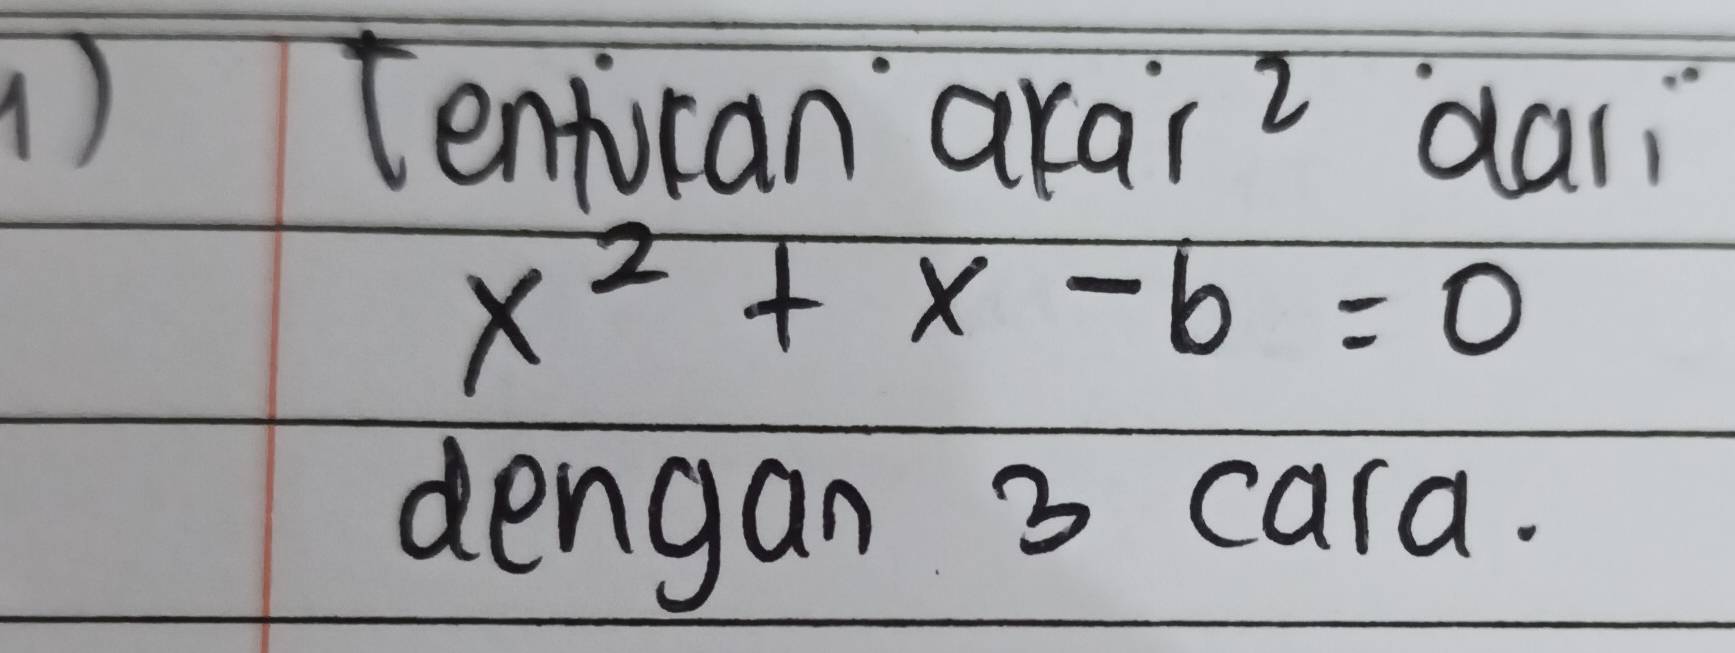 1) Tentukan akar² dari
x² + x - 6 = 0
dengan 3 cara.